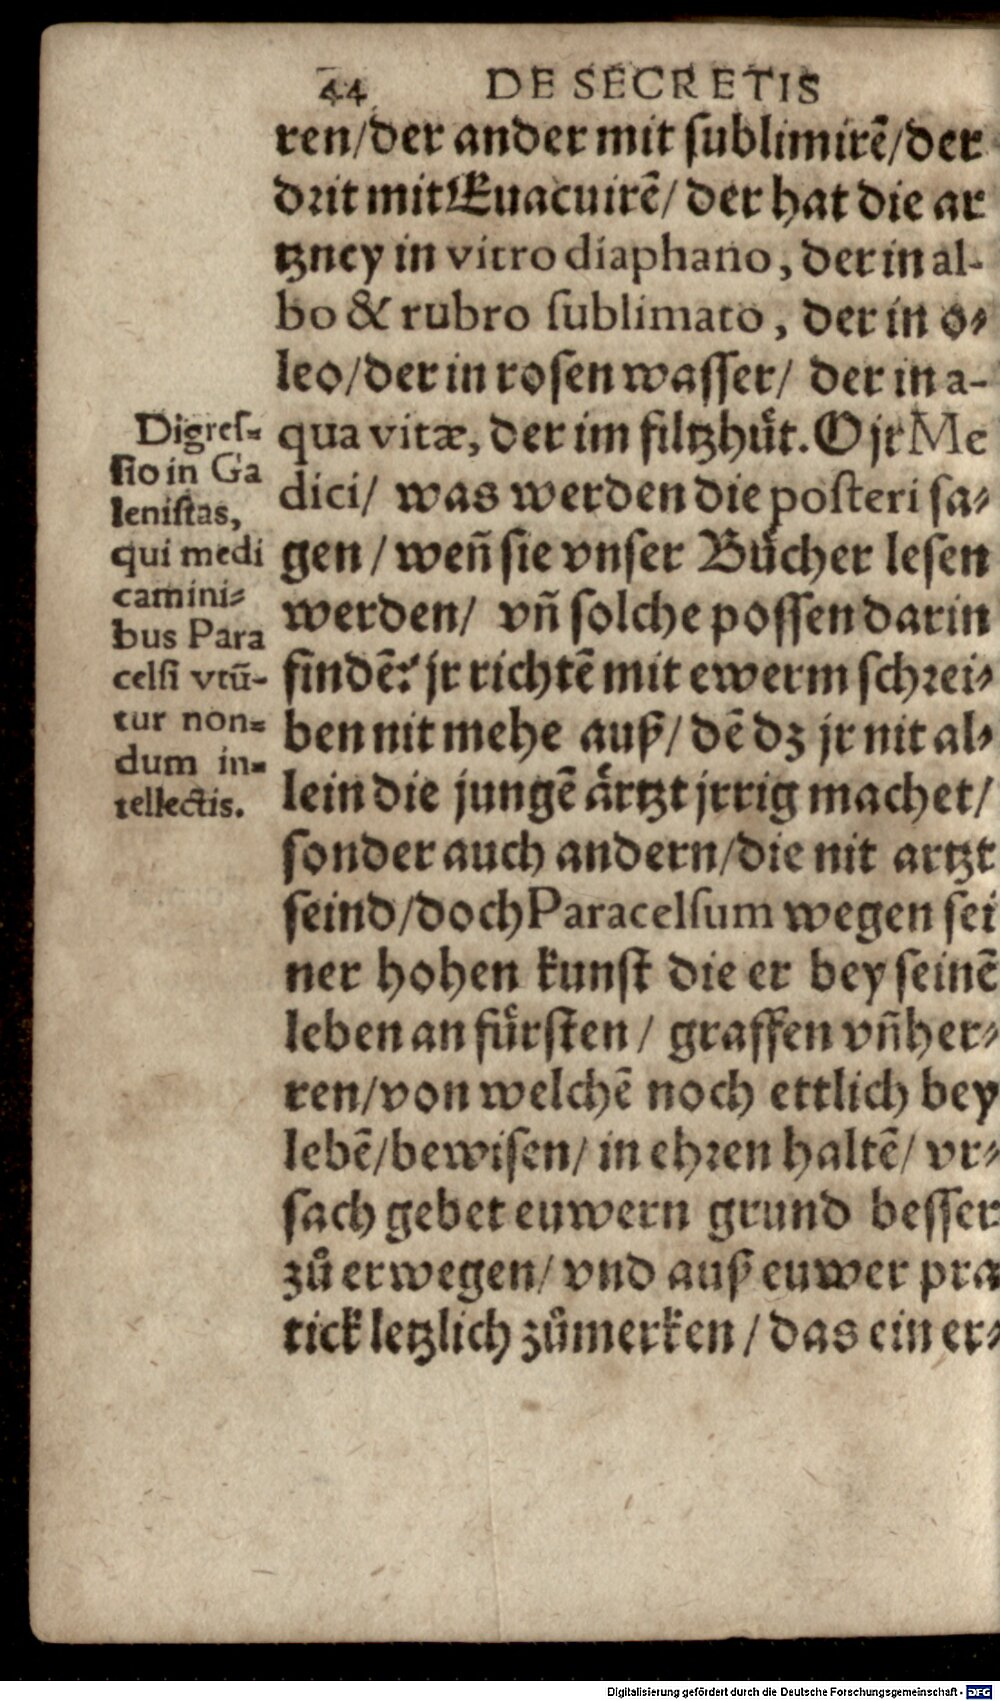 44 DE SECRETIS
ren/der ander mit ſublimirē/der
drit mit Euacuirē/ der hat die ar
tzney in vitro diaphano, der in al-
bo & rubro ſublimato, der in o⸗
leo/der in roſen waſſer/ der in a-
qua vitæ, der im filtzhuͤt. O jr Me
dici/ was werden die poſteri ſa⸗
gen/ weñ ſie vnſer Buͤcher leſen
werden/ vñ ſolche poſſen darin
findē? jr richtē mit ewerm ſchrei⸗
ben nit mehe auß/ dē dz jr nit al⸗
lein die jungē aͤrtzt jrrig machet/
ſonder auch andern/die nit artzt
ſeind/doch Paracelſum wegen ſei
ner hohen kunſt die er bey ſeinē
leben an fuͤrſten/ graffen vñ her⸗
ren/von welchē noch ettlich bey
lebē/bewiſen/ in ehren haltē/ vr⸗
ſach gebet euwern grund beſſer
zů erwegen/ vnd auß euwer pra
tick letzlich zůmerken/ das ein er⸗
Digreſ⸗
ſio in Ga
leniſtas,
qui medi
camini⸗
bus Para
celſi vtū-
tur non⸗
dum in⸗
tellectis.
Digitalisierung gefördert durch die Deutsche Forschungsgemeinschaft - DFG